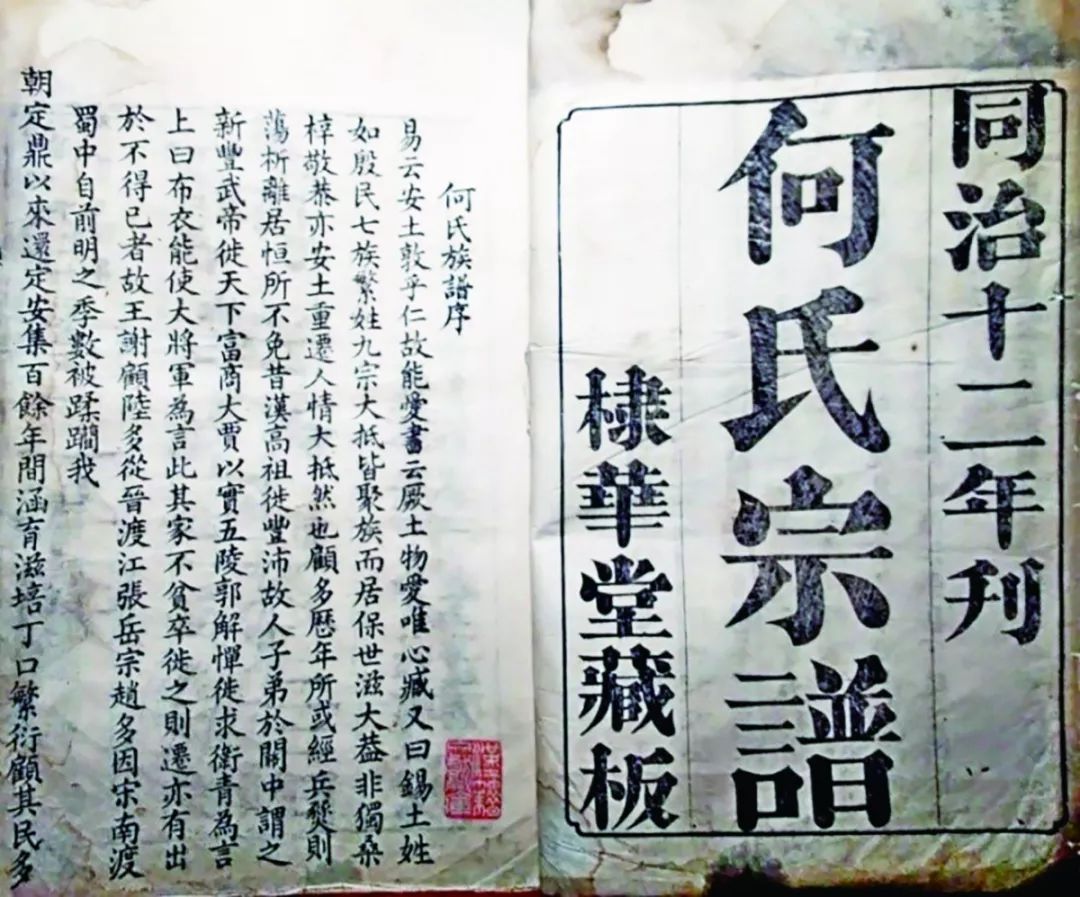 同治十二年刊
何氏宗譜
棣華堂藏板
何氏族譜序
易云安土敦乎仁故能愛書云厥土物愛唯心臧又曰錫土姓
如殷民七族繁姓九宗大抵皆聚族而居保世滋大葢非獨桑
梓敬恭亦安土重遷人情大抵然也顧多歷年所或經兵燹則
蕩析離居恒所不免昔漢高祖徙豐沛故人子弟於關中謂之
新豐武帝徙天下富商大賈以實五陵郭解憚徙求衛青為言
上曰布衣能使大將軍為言此其家不貧卒徙之則遷亦有出
於不得已者故王謝顧陸多從晉渡江張岳宗趙多因宋南渡
蜀中自前明之季數被蹂躪我
朝定鼎以來還定安集百餘年間涵育滋培丁口繁衍顧其民多